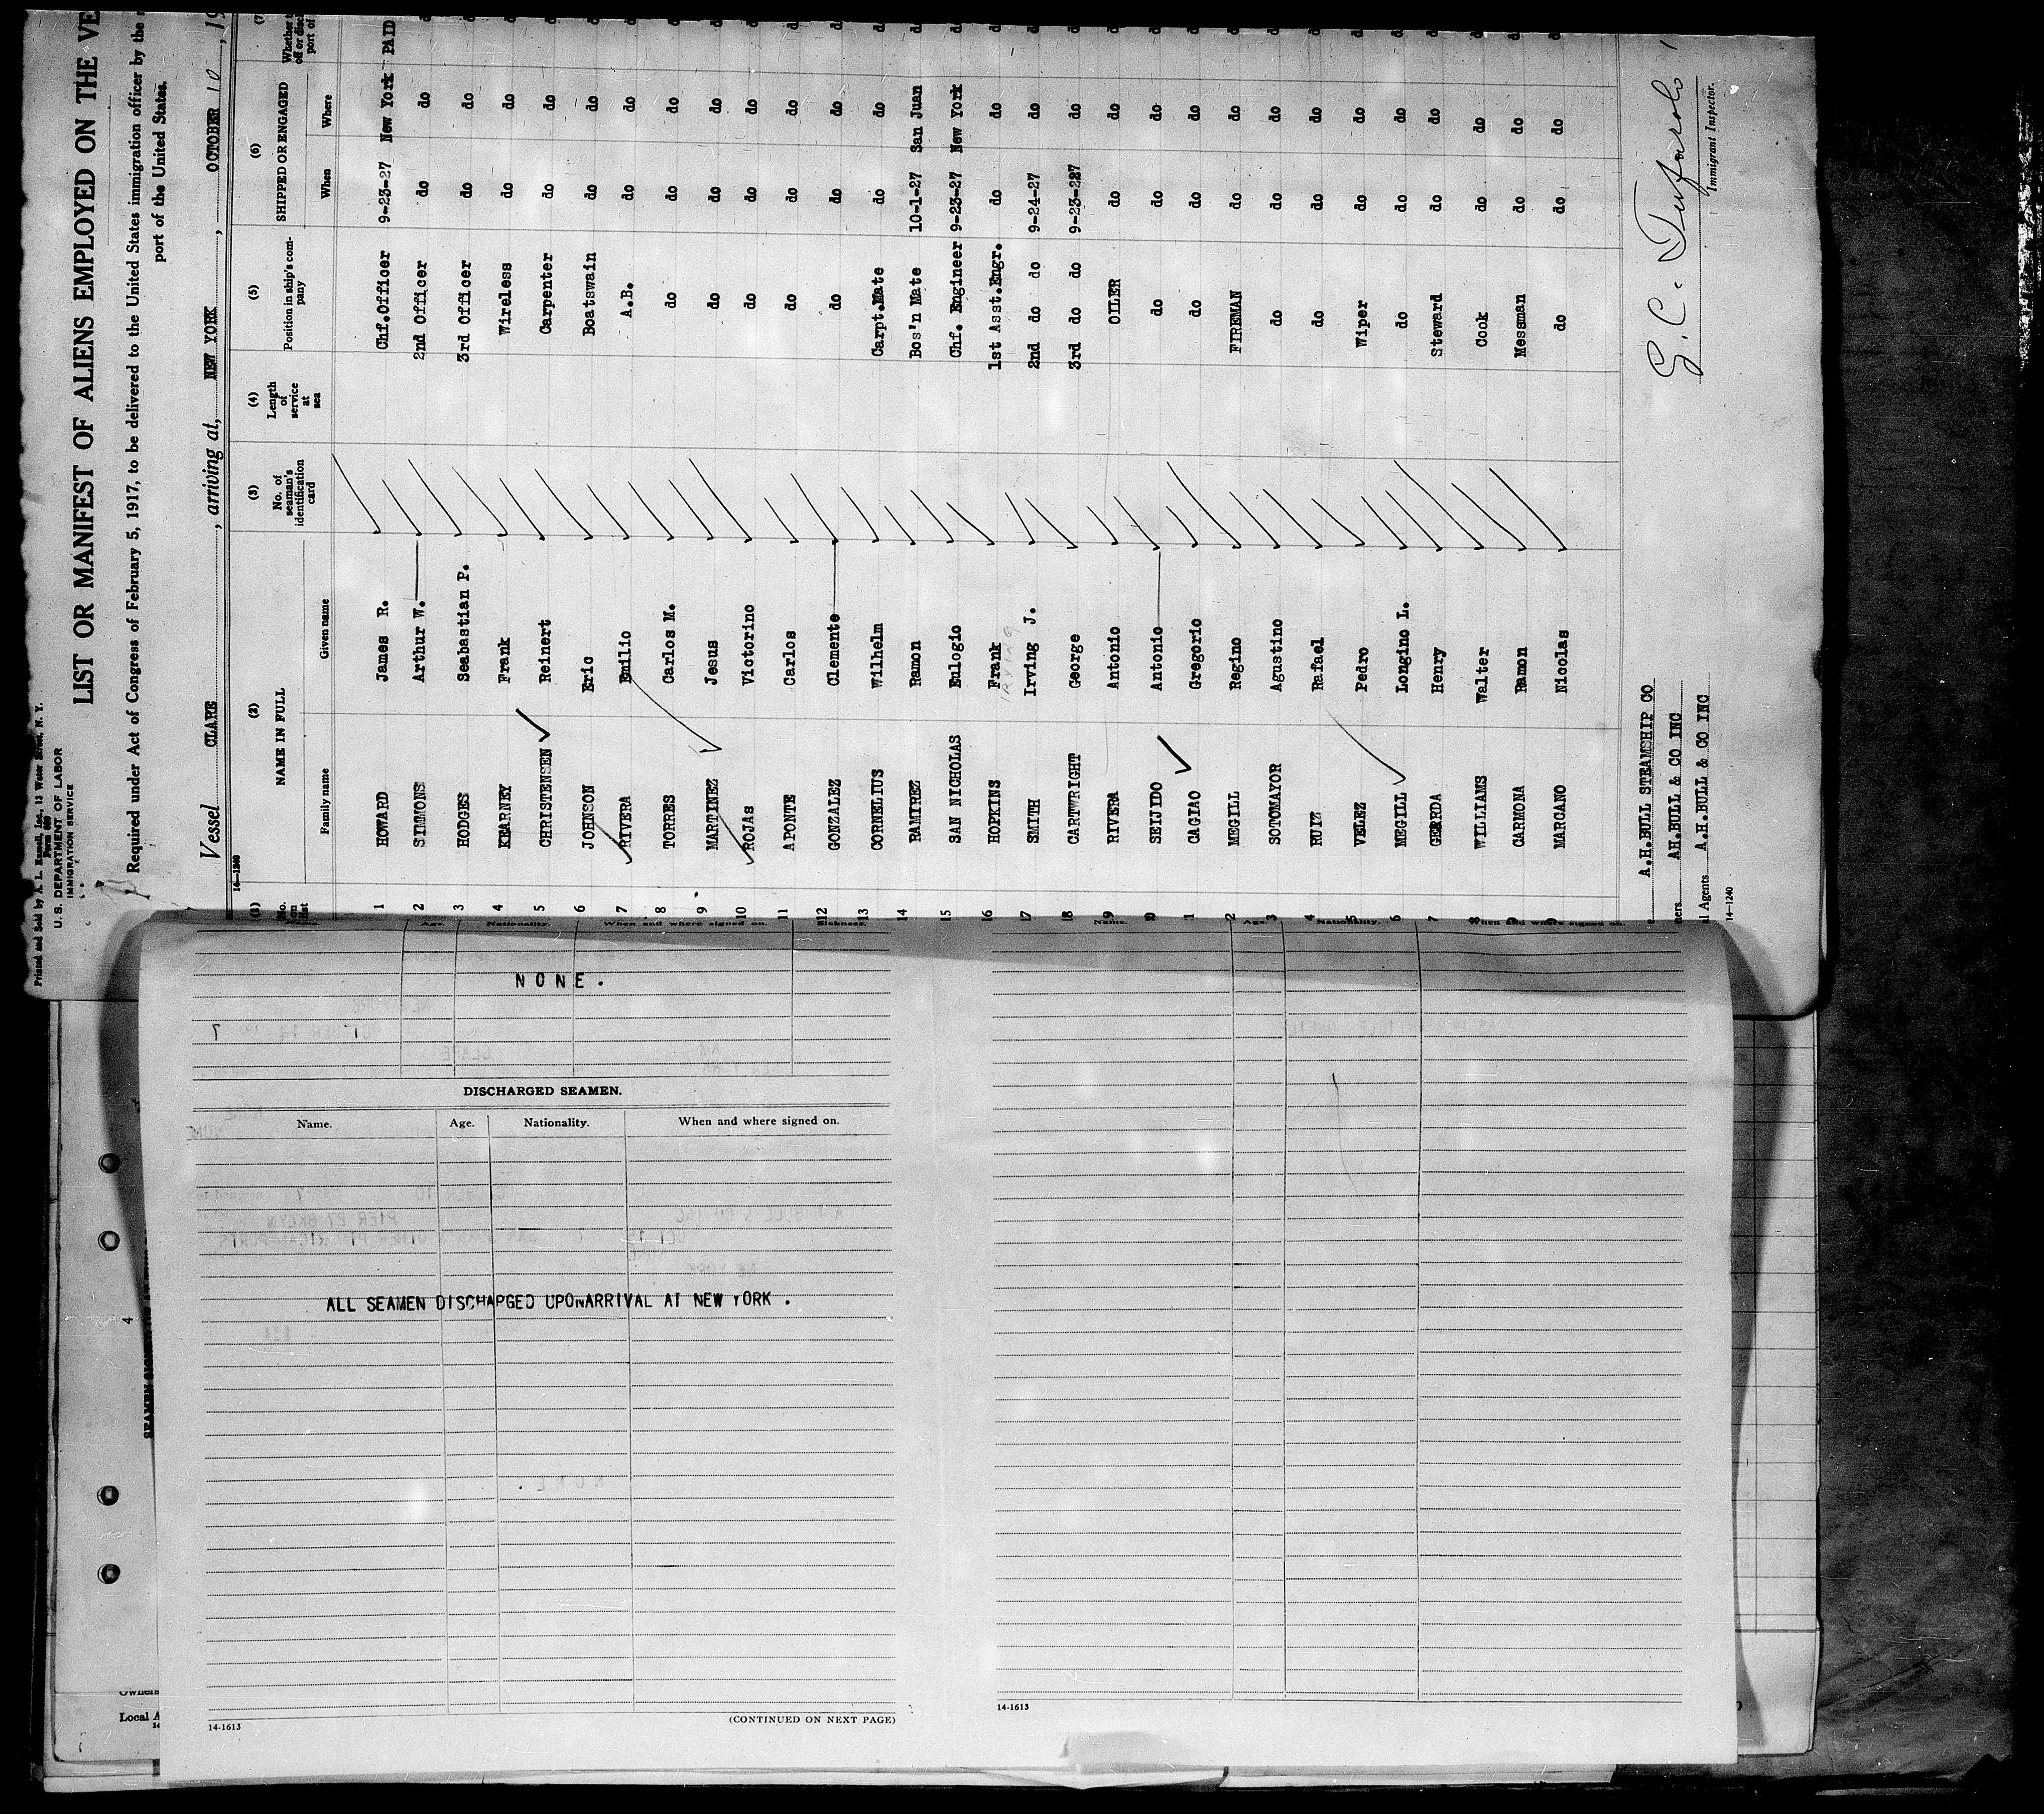 Printed and Sold by A. L. Russell, Inc., 13 Water Street, N. Y.
Form 689
U. S. DEPARTMENT OF LABOR
IMMIGRATION SERVICE
LIST OR MANIFEST OF ALIENS EMPLOYED ON THE VE
Required under Act of Congress of February 5, 1917, to be delivered to the United States immigration officer by the
port of the United States.
Vessel CLARE, arriving at, NEW YORK, OCTOBER 10, 19
14-1240
(1) (2) (3) (4) (5) (6) (7)
No. on list NAME IN FULL No. of seaman's identification card Length of service at sea Position in ship's company SHIPPED OR ENGAGED
Family name Given name When Where
1 HOWARD James R. Chf.Officer 9-23-27 New York PAID
2 SIMMONS Arthur W. 2nd Officer do do
3 HODGES Seabastian P. 3rd Officer do do
4 KEARNEY Frank Wireless do do
5 CHRISTENSEN Reinert Carpenter do do
6 JOHNSON Eric Boatswain do do
7 RIVERA Emilio A.B. do do
8 TORRES Carlos M. do do do
9 MARTINEZ Jesus do do do
10 ROJAS Victorino do do do
11 APONTE Carlos do do do
12 GONZALEZ Clemente do do do
13 CORNELIUS Wilhelm Carpt.Mate do do
14 RAMIREZ Ramon Bos'n Mate 10-1-27 San Juan
15 SAN NICHOLAS Eulogio Chf. Engineer 9-23-27 New York
16 HOPKINS Frank 1st Asst.Engr. do do
17 SMITH Irving J. 2nd do do 9-24-27 do
18 CARTWRIGHT George 3rd do do 9-23-227 do
9 RIVERA Antonio OILER do do
10 SEIJIDO Antonio do do do
1 CAGIAO Gregorio do do do
2 MEGILL Regino FIREMAN do do
3 SOTOMAYOR Agustino do do do
4 RUIZ Rafael do do do
5 VELEZ Pedro Wiper do do
6 MEGILL Longino L. do do do
7 GERDA Henry Steward do do
8 WILLIAMS Walter Cook do do
9 CARMONA Ramon Messman do do
MARCANO Nicolas do do do
A.H.BULL STEAMSHIP CO
ners AH.BULL & CO INC
l Agents A.H.BULL & CO INC
14-1240
Immigrant Inspector.
Age. Nationality. When and where signed on. Sickness.
NONE.
DISCHARGED SEAMEN.
Name. Age. Nationality. When and where signed on.
ALL SEAMEN DISCHARGED UPONARRIVAL AT NEW YORK .
14-1613
(CONTINUED ON NEXT PAGE)
Name. Age. Nationality. When and where signed on.
14-1613
4
Owners
Local A